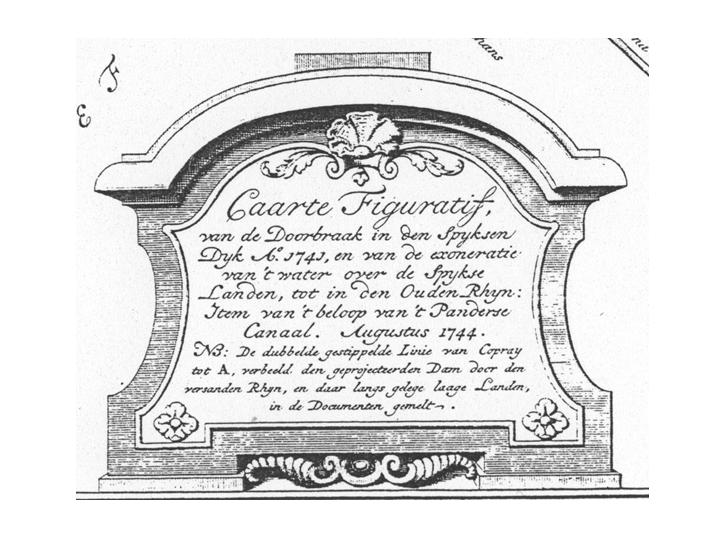 hans
na
F
E
Caarte Figuratif,
van de Doorbraak in den Spyksen
Dyk Aº. 1741, en van de exoneratie
van't water over de Spykse
Landen, tot in den Ouden Rhyn:
Item van't beloop van't Panderse
Canaal. Augustus 1744.
NB: De dubbelde gestippelde Linie van Copray
tot A, verbeeld den geprojecteerden Dam door den
versanden Rhyn, en daar langs gelege laage Landen,
in de Documenten gemelt.